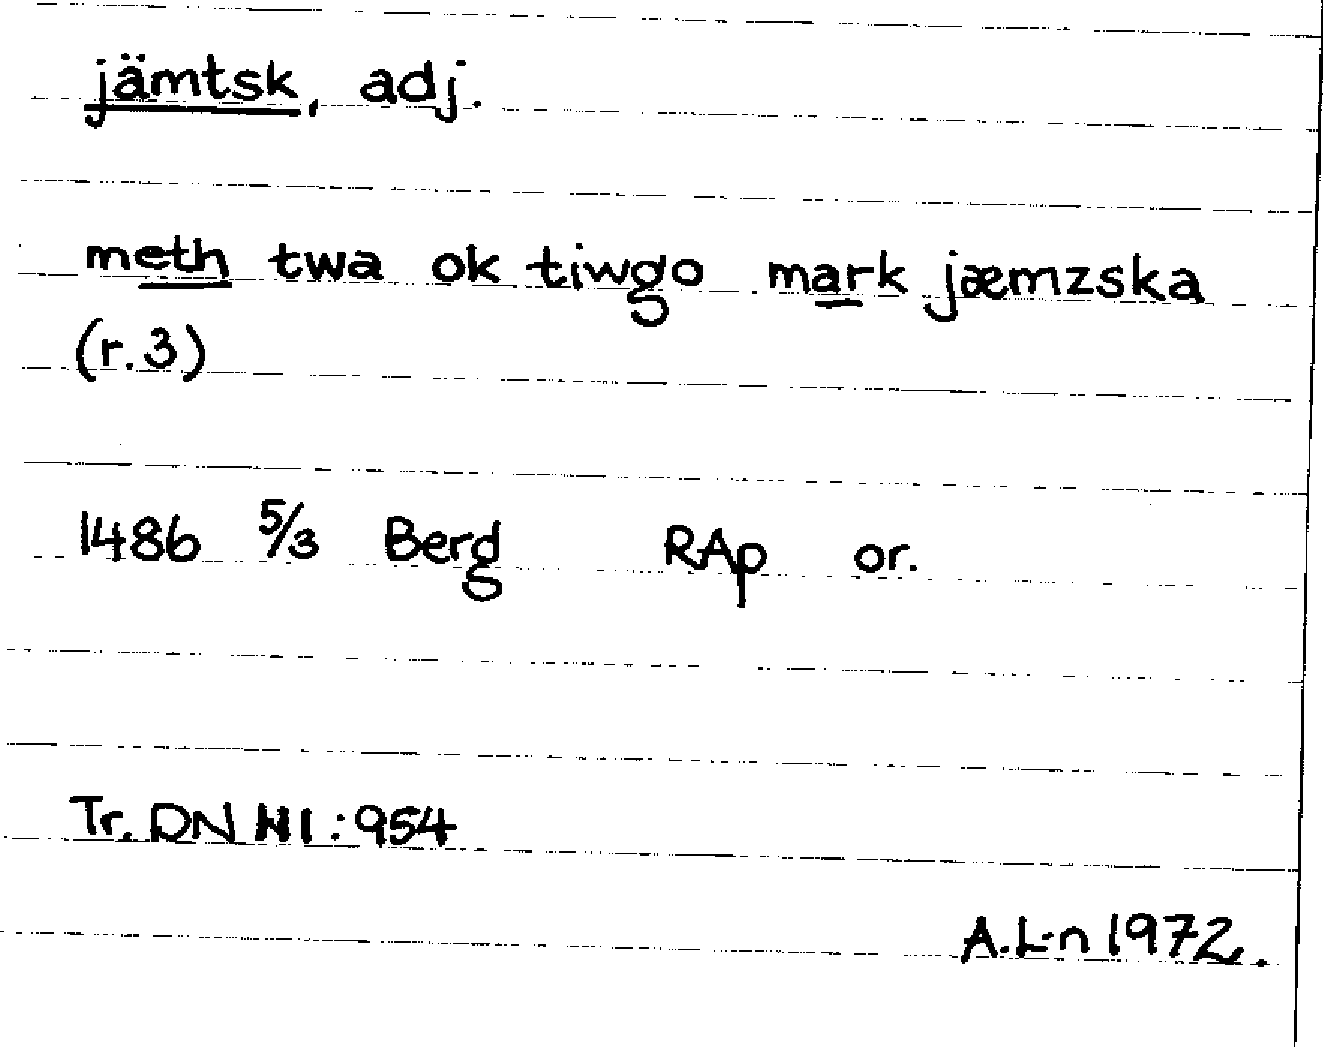 jämtsk, adj.
meth twa ok tiwgo mark jæmzska
(r.3)
1486 5/3 Berg RAp or.
Tr. DN III:954
A.L-n 1972.